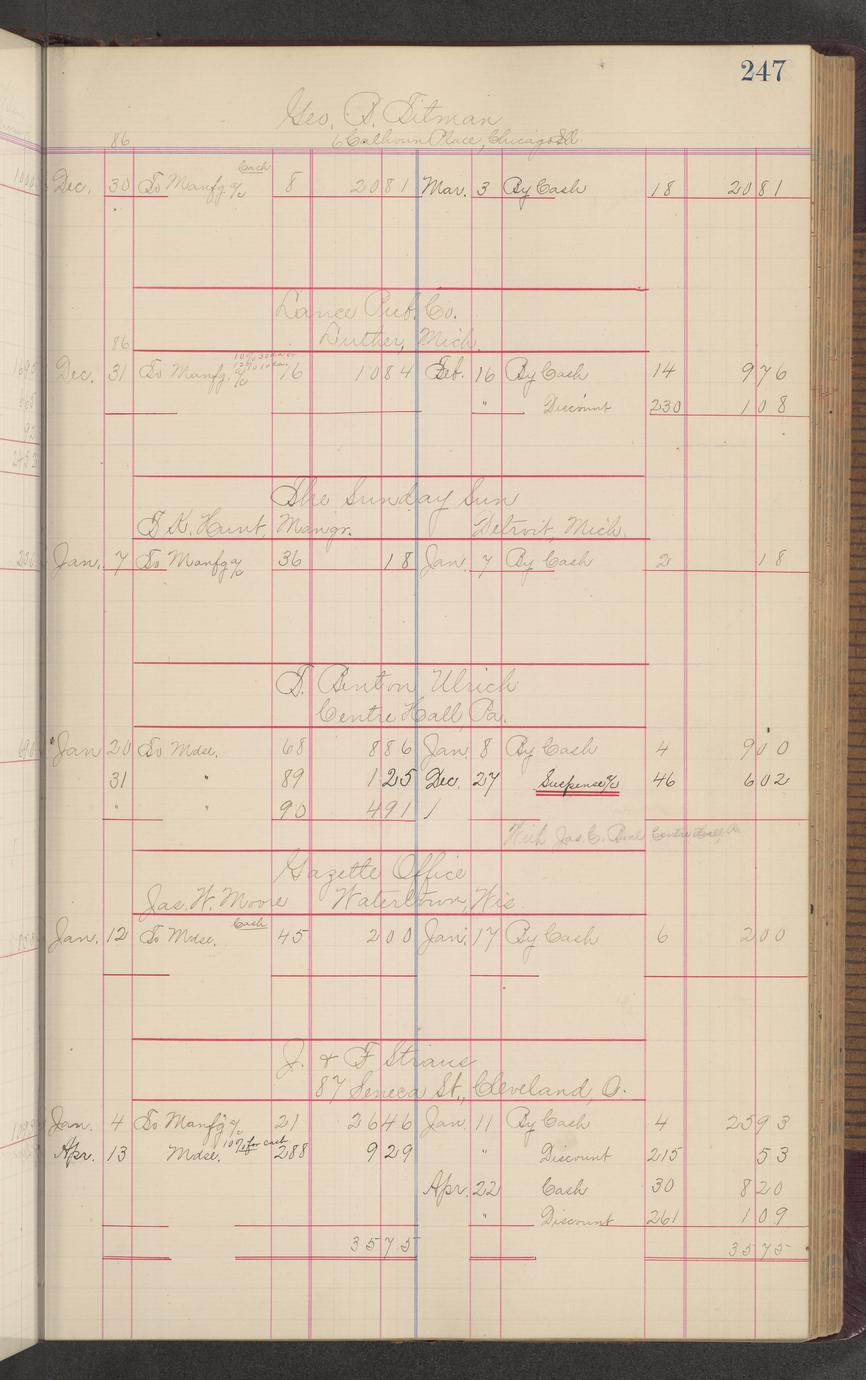 247
Geo. P. Titman
86 6 Calhoun Place, Chicago Ill.
Cash
Dec. 30 To Manfg a/c 8 2081 Mar. 3 By Cash 18 2081
Lance Pub. Co.
86 Luther, Mich.
Dec. 31 To Manfg. a/c 76 1084 Feb. 16 By Cash 14 976
" Discount 230 108
The Sunday Sun
T. K. Hunt, Mangr. Detroit, Mich.
Jan. 7 To Manfg a/c 36 18 Jan. 7 By Cash 2 18
T. Benton Ulrich
Centre Hall, Pa.
Jan 20 To Mdse. 68 886 Jan. 8 By Cash 4 900
31 " 89 125 Dec. 27 Suspense a/c 46 602
" " 90 491
With Jas. C. Centre Hall, Pa
Gazette Office
Jas. W. Moore Watertown, Wis.
Cash
Jan. 12 To Mdse. 45 200 Jan. 17 By Cash 6 200
J. & F Straus
87 Seneca St., Cleveland, O.
Jan. 4 To Manfg a/c 21 2646 Jan. 11 By Cash 4 2593
Apr. 13 Mdse. 10% for cash 288 929 " Discount 215 53
Apr. 22 Cash 30 820
" Discount 261 109
3575 3575